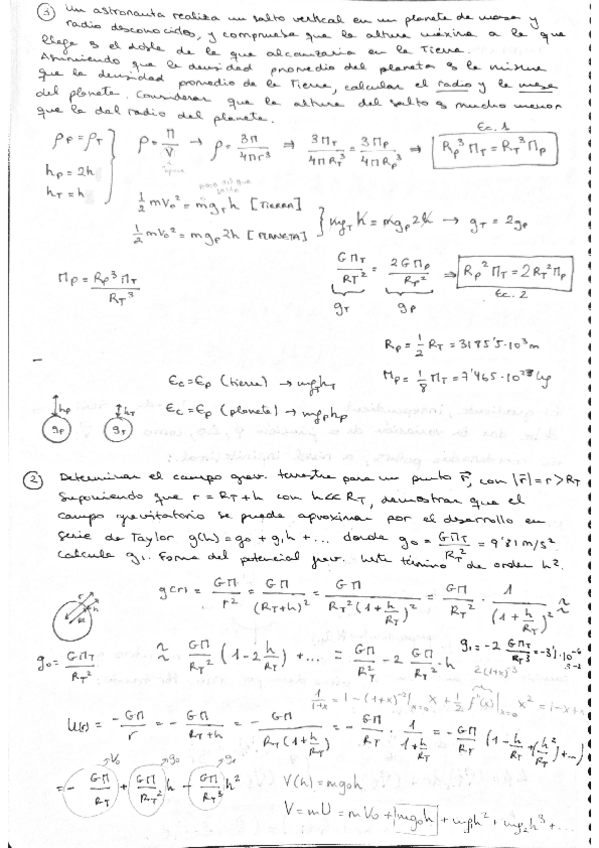 ① Un astronauta realiza un salto vertical en un planeta de masa y
radio desconocidos, y comprueba que la altura máxima a la que
llega es el doble de la que alcanzaría en la Tierra.
Asumiendo que la densidad promedio del planeta es la misma
que la densidad promedio de la Tierra, calcular el radio y la masa
del planeta. Considerar que la altura del salto es mucho menor
que la del radio del planeta.
Ec. 1
ρp = ρT } ρ = M/V → ρ = 3M/4πr³ ⇒ 3MT/4πRT³ = 3Mp/4πRp³ ⇒ Rp³ MT = RT³ Mp
hp = 2h
hT = h
½ mV₀² = m gT h [TIERRA]
½ mV₀² = m gp 2h [PLANETA] } m gT h = m gp 2h → gT = 2gp
Mp = Rp³ MT / RT³
GMT/RT² = 2GMp/Rp² ⇒ Rp² MT = 2RT² Mp
gT gp Ec. 2
Rp = ½ RT = 3185'5·10³ m
Mp = ⅛ MT = 7'465·10²³ kg
Ec = Ep (tierra) → m gT hT
Ec = Ep (planeta) → m gp hp
hp hT
gp gT
② Determinar el campo grav. terrestre para un punto r⃗, con |r⃗| = r > RT
Suponiendo que r = RT + h con h << RT, demostrar que el
campo gravitatorio se puede aproximar por el desarrollo en
serie de Taylor g(h) = g₀ + g₁h + ... donde g₀ = GMT/RT² = 9'81 m/s²
Calcula g₁. Forma del potencial grav. hasta término de orden h².
g(r) = GM/r² = GM/(RT+h)² = GM/RT²(1+h/RT)² = GM/RT² · 1/(1+h/RT)² ≈
g₀ = GMT/RT² ≈ GM/RT² (1 - 2 h/RT) + ... = GM/RT² - 2 GM/RT³ · h g₁ = -2 GMT/RT³ = -3'1·10⁻⁶ s⁻²
1/(1+x) = 1 - (1+x)⁻²|ₓ₌₀ x + ½ f''(x)|ₓ₌₀ x² = 1 - x + x
2(1+x)⁻³
U(r) = -GM/r = - GM/(RT+h) = - GM/RT(1+h/RT) = - GM/RT · 1/(1+h/RT) = - GM/RT (1 - h/RT + (h²/RT²) + ...)
V₀ g₀ g₁
= - GM/RT + GM/RT² h - GM/RT³ h² V(h) = mg₀h
V = mU = mV₀ + mg₀h + mg₁h² + mg₂h³ + ...